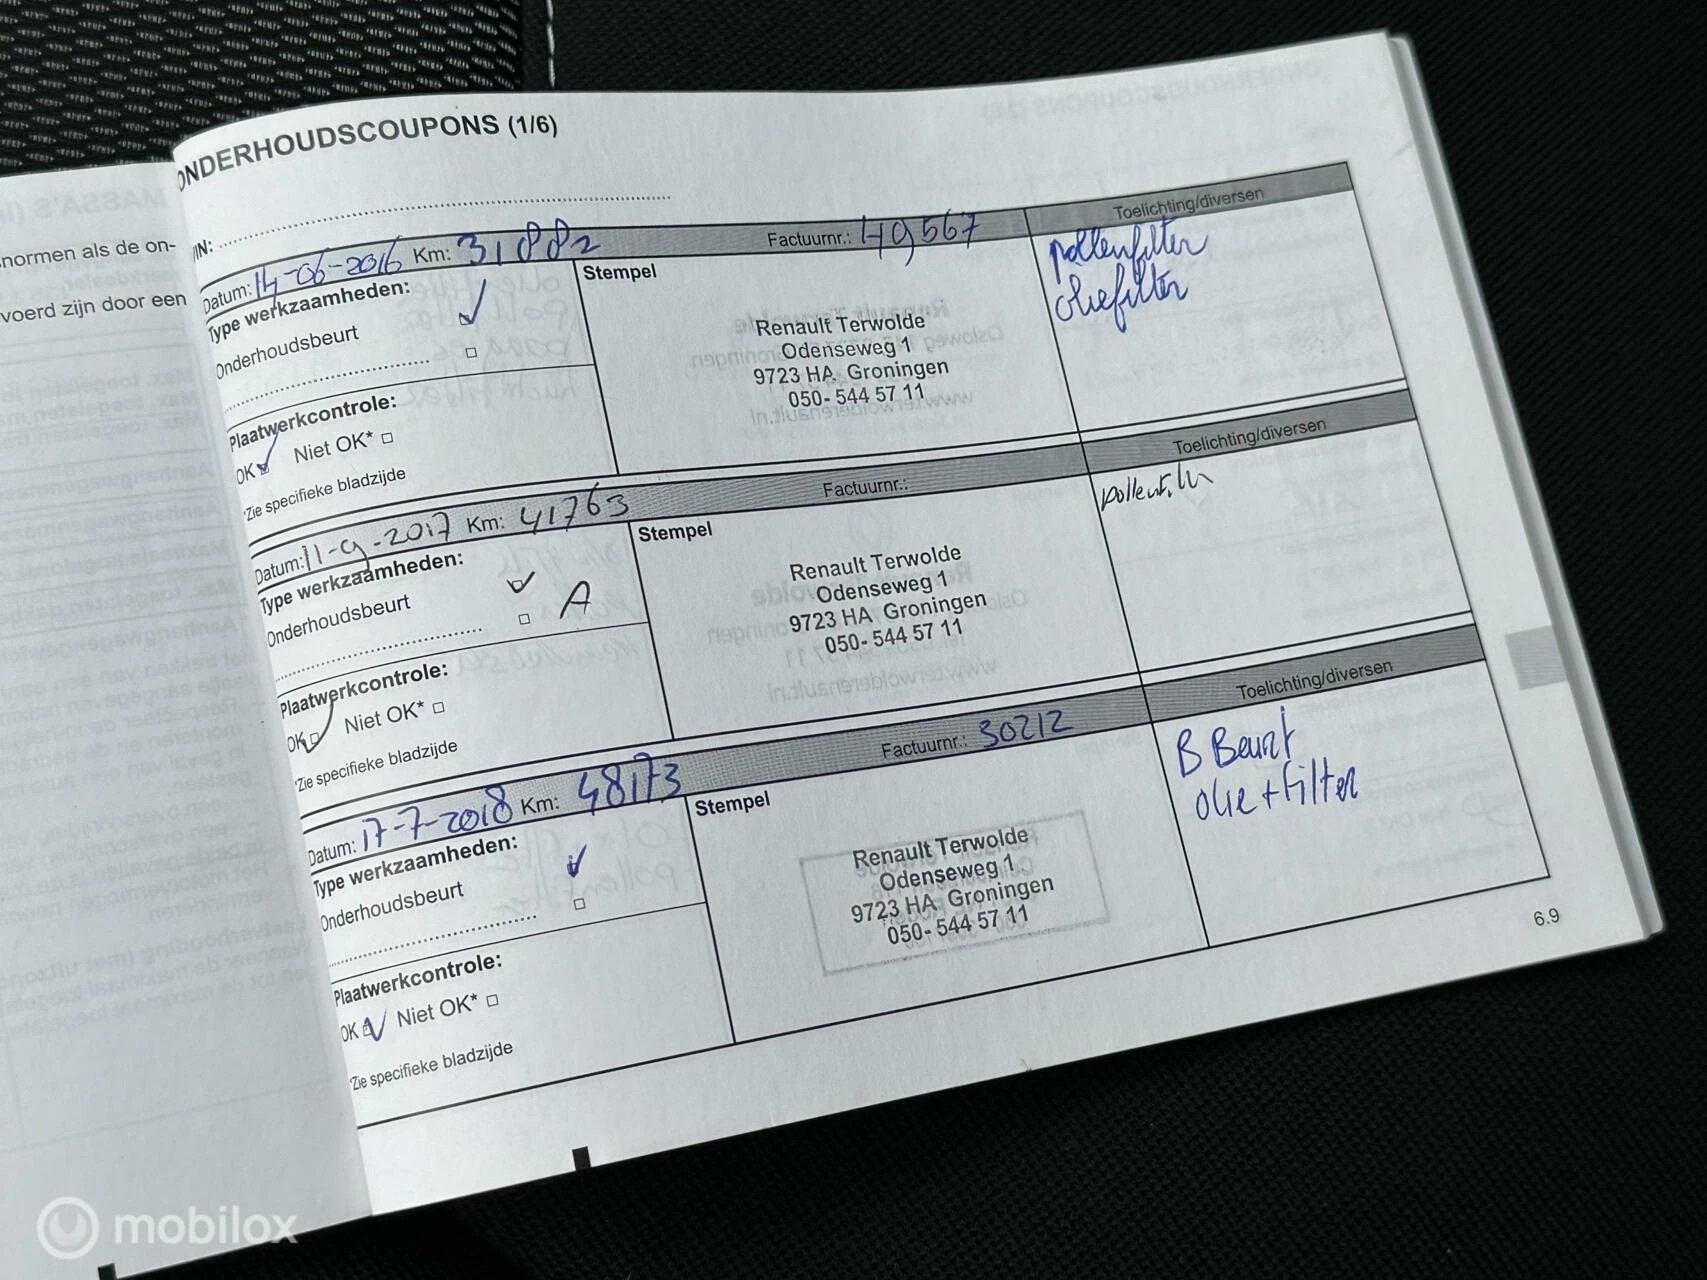 normen als de on-
voerd zijn door een
ONDERHOUDSCOUPONS (1/6)
Datum: 14-06-2016 Km: 31882 Factuurnr.: 49567 Toelichting/diversen
Type werkzaamheden:
Onderhoudsbeurt
Plaatwerkcontrole:
OK Niet OK*
*Zie specifieke bladzijde
Stempel
Renault Terwolde
Odenseweg 1
9723 HA Groningen
050- 544 57 11
pollenfilter
oliefilter
Datum: 11-9-2017 Km: 41763 Factuurnr.: Toelichting/diversen
Type werkzaamheden:
Onderhoudsbeurt
A
Plaatwerkcontrole:
OK Niet OK*
*Zie specifieke bladzijde
Stempel
Renault Terwolde
Odenseweg 1
9723 HA Groningen
050- 544 57 11
Datum: 17-7-2018 Km: 48173 Factuurnr.: 30212 Toelichting/diversen
Type werkzaamheden:
Onderhoudsbeurt
Plaatwerkcontrole:
OK Niet OK*
*Zie specifieke bladzijde
Stempel
Renault Terwolde
Odenseweg 1
9723 HA Groningen
050- 544 57 11
B Beurt
olie + filter
6.9
mobilox